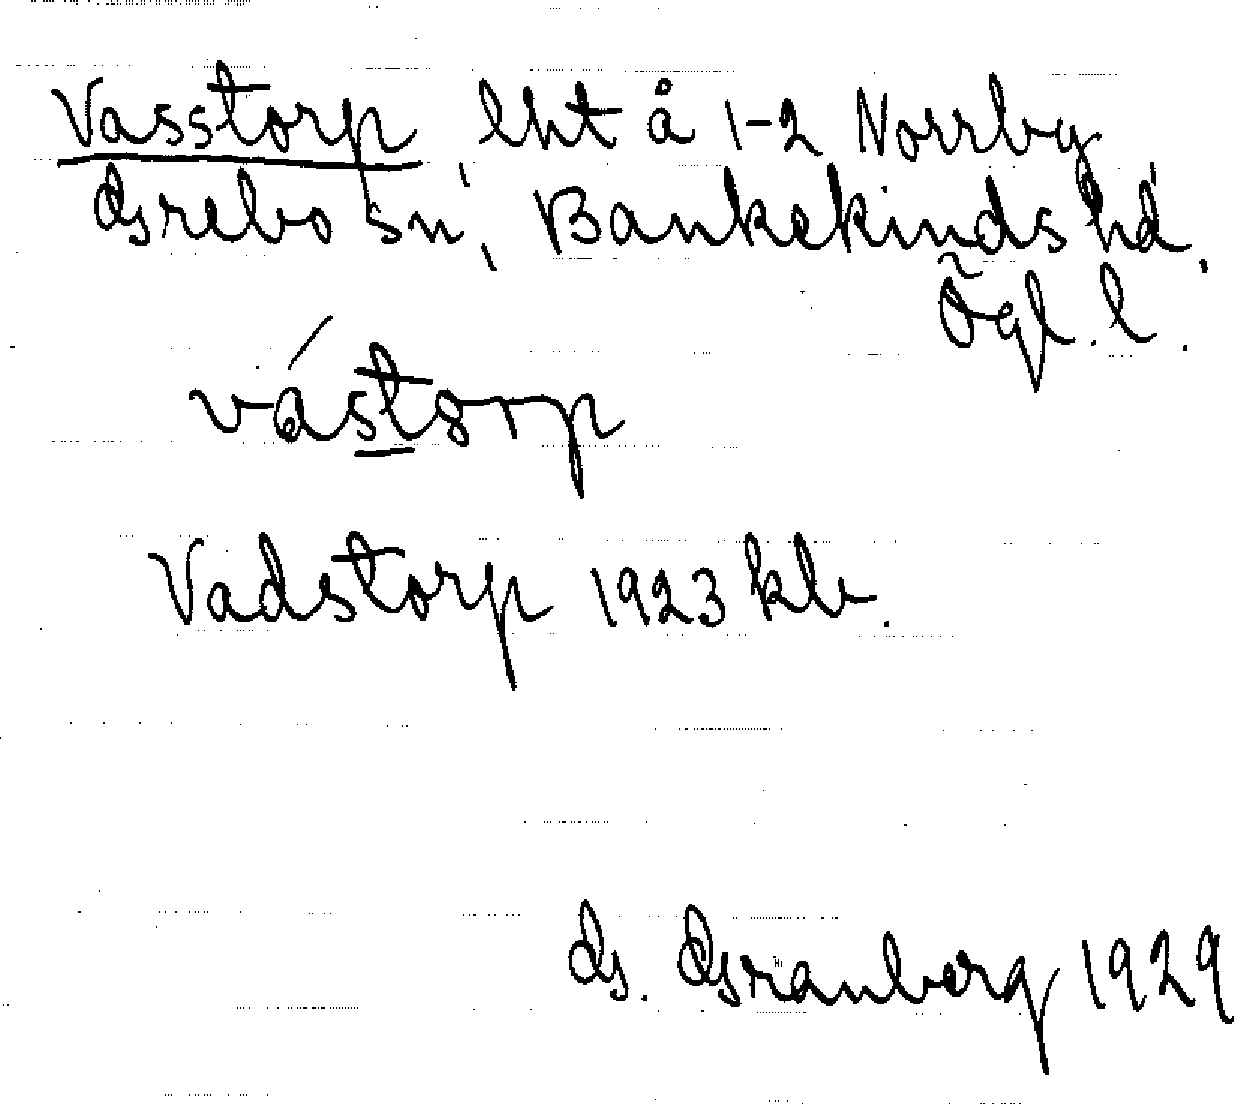 Vasstorp, lht å 1-2 Norrby
Grebo sn, Bankekinds hd.
Ögl. l.
vástorp
Vadstorp 1923 kb.
G. Granberg 1929